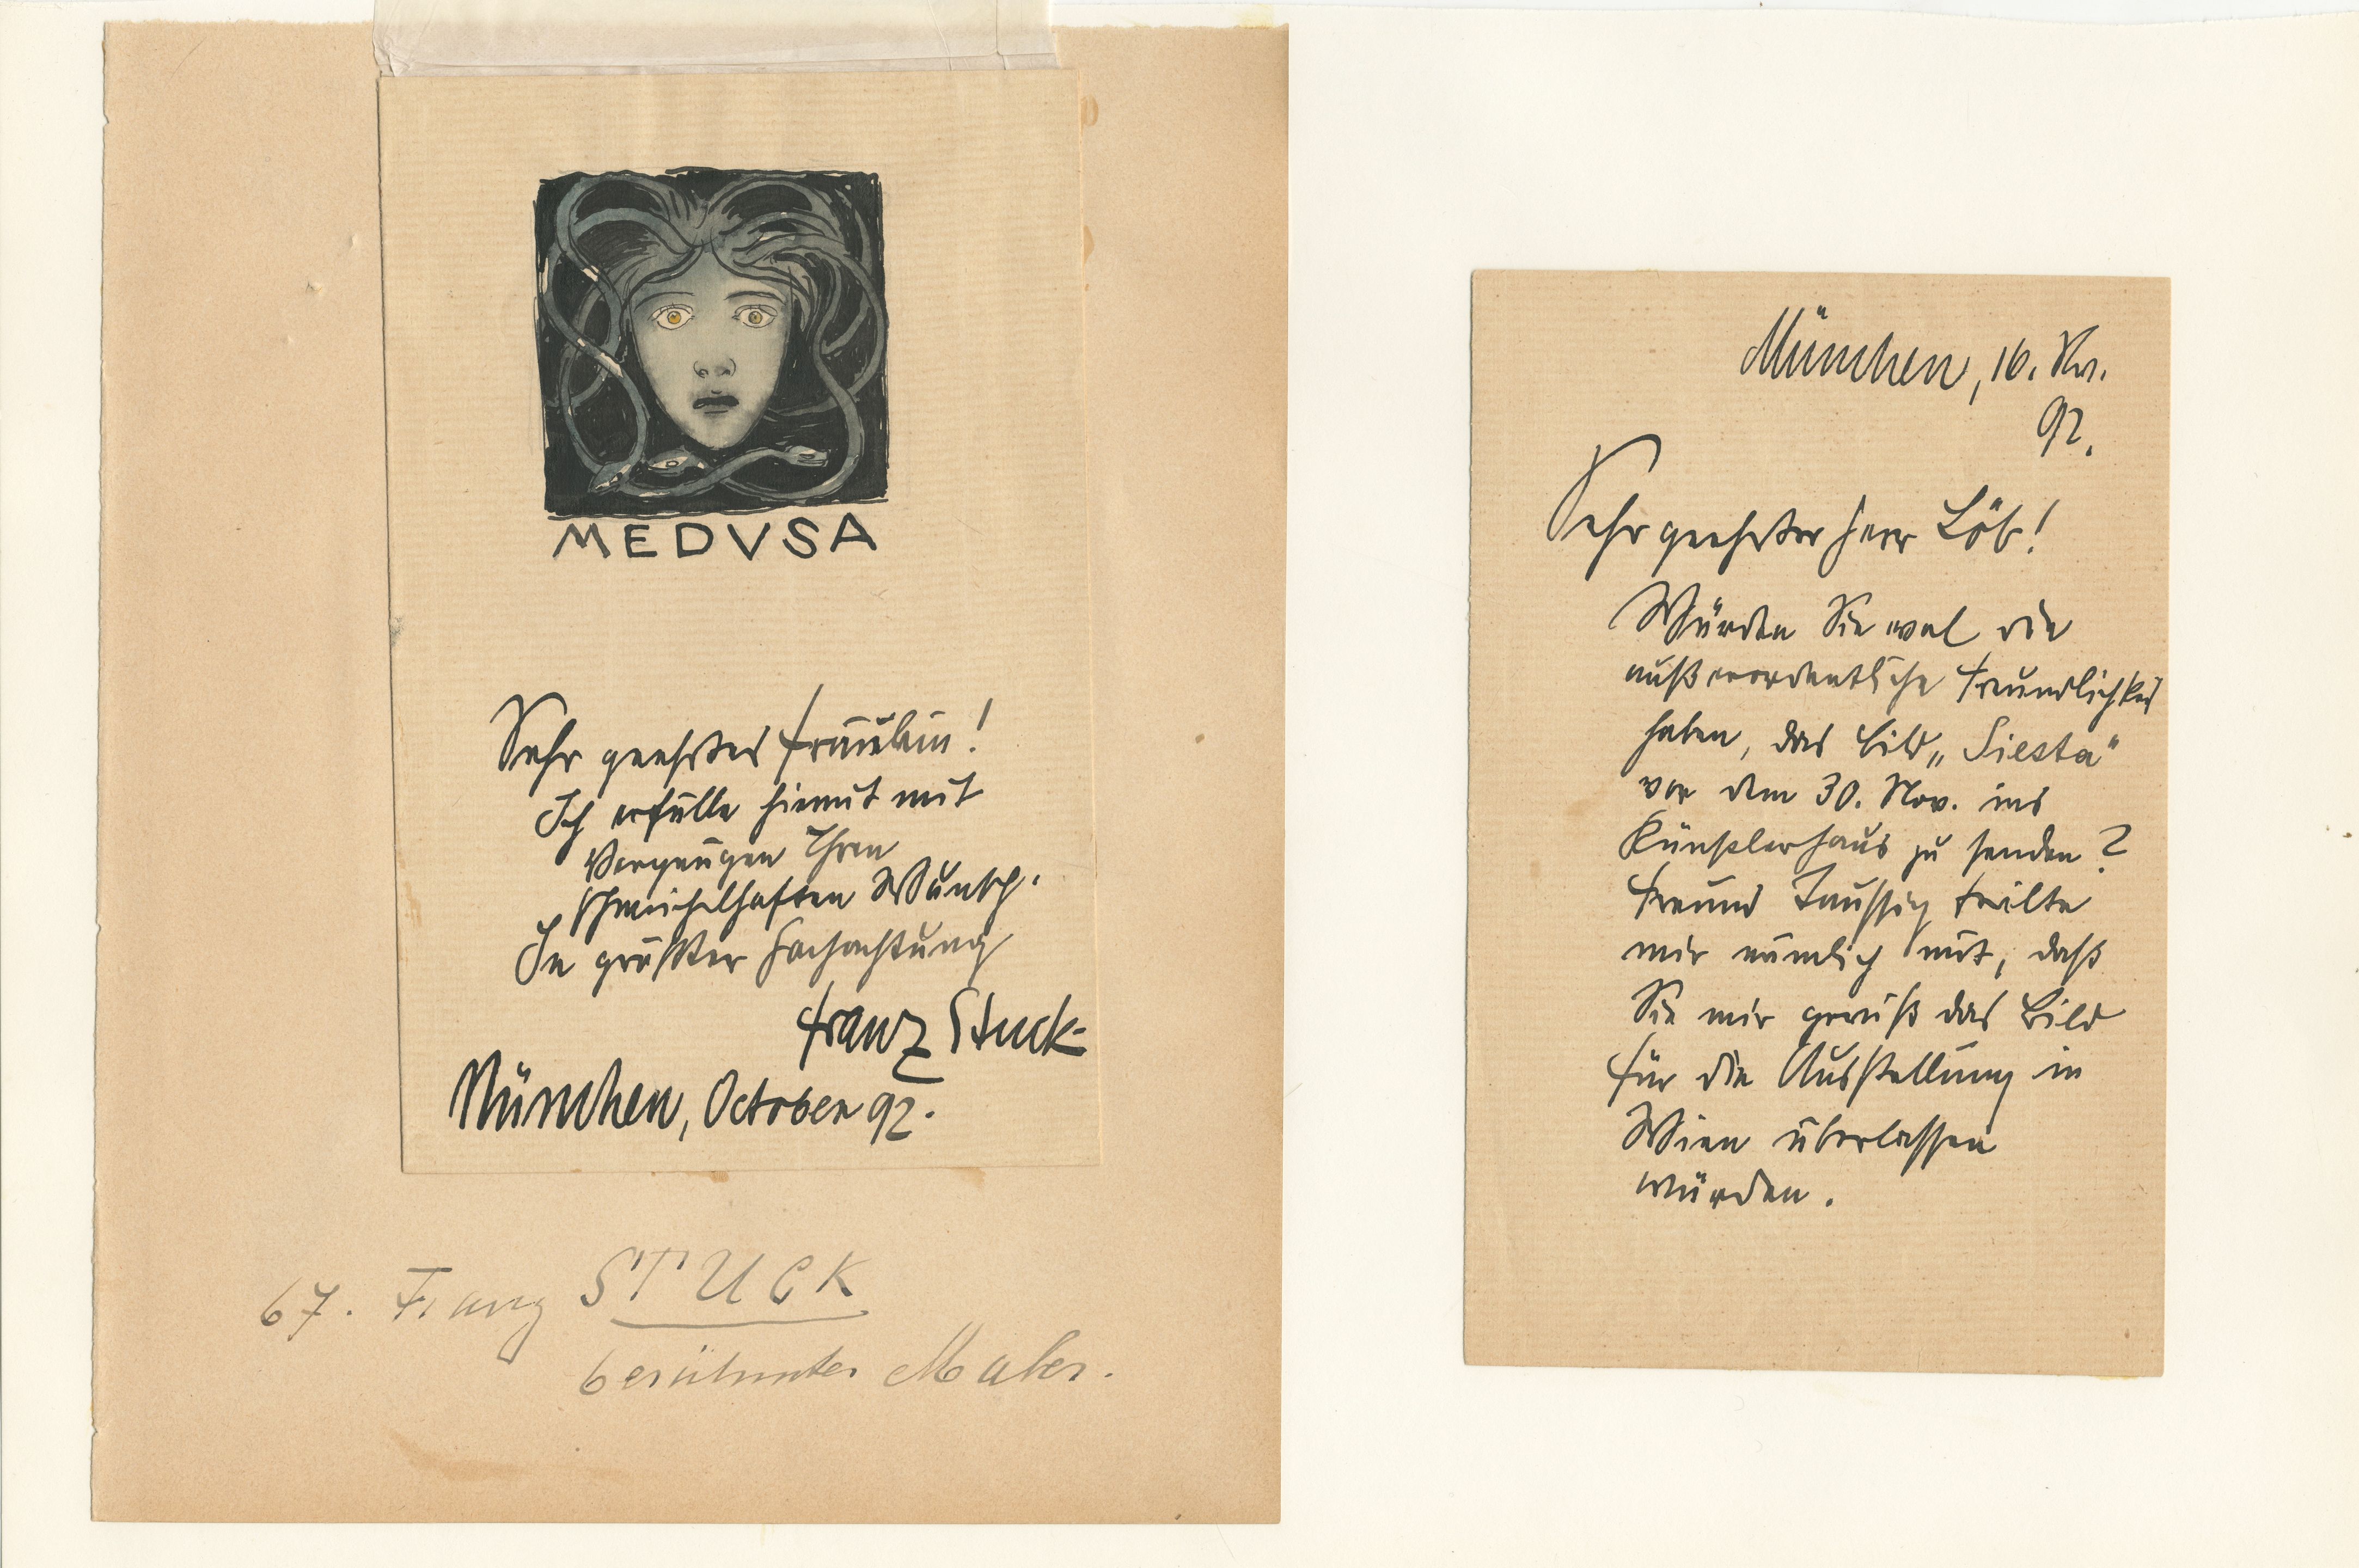 MEDVSA
Sehr geehrtes Fräulein!
Ich erfülle hiemit mit
Vergnügen Ihren
schmeichelhaften Wunsch.
In größter Hochachtung
Franz Stuck
München, October 92.
67. Franz STUCK
berühmter Maler.
München, 16. Nov.
92.
Sehr geehrter Herr Löb!
Würden Sie wol die
außerordentliche Freundlichkeit
haben, das Bild „Siesta"
vor dem 30. Nov. ins
Künstlerhaus zu senden?
Freund Taussig teilte
mir nämlich mit, daß
Sie mir gewiß das Bild
für die Ausstellung in
Wien überlassen
würden.